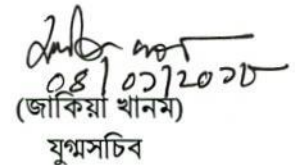 ০৪/০১/২০১৮
(জাকিয়া খানম)
যুগ্মসচিব